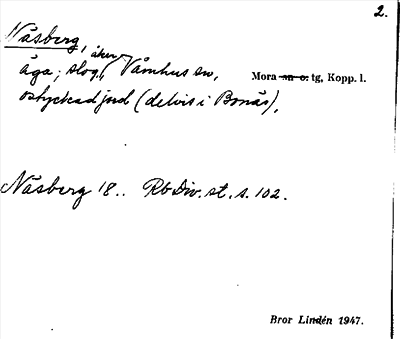 2.
Näsberg, åker,
äga; slog, Våmhus sn, Mora sn o. tg, Kopp. l.
ostyckad jord (delvis i Bonäs),
Näsberg 18.. Rb Div. st. s. 102.
Bror Lindén 1947.